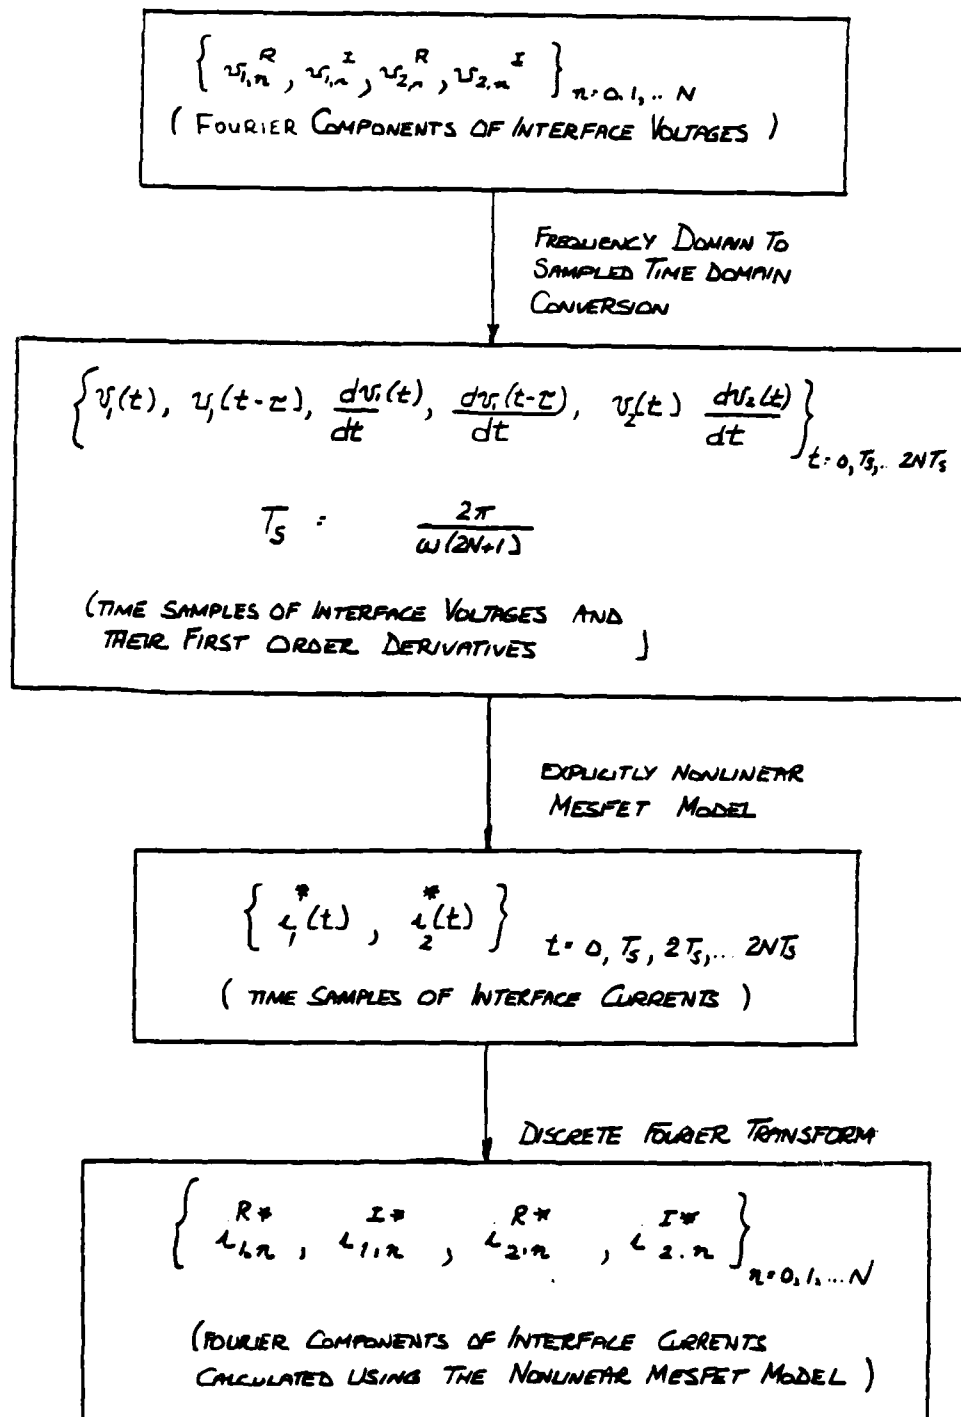 { v₁,ₙᴿ, v₁,ₙᴵ, v₂,ₙᴿ, v₂,ₙᴵ }ₙ₌₀,₁,.. N
( FOURIER COMPONENTS OF INTERFACE VOLTAGES )
FREQUENCY DOMAIN TO
SAMPLED TIME DOMAIN
CONVERSION
{ v₁(t), v₁(t-τ), dv₁(t)/dt, dv₁(t-τ)/dt, v₂(t) dv₂(t)/dt } t=0, Ts,.. 2NTs
Ts = 2π/ω(2N+1)
(TIME SAMPLES OF INTERFACE VOLTAGES AND
THEIR FIRST ORDER DERIVATIVES )
EXPLICITLY NONLINEAR
MESFET MODEL
{ i₁*(t), i₂*(t) } t=0, Ts, 2Ts,... 2NTs
( TIME SAMPLES OF INTERFACE CURRENTS )
DISCRETE FOURIER TRANSFORM
{ i₁,ₙᴿ*, i₁,ₙᴵ*, i₂,ₙᴿ*, i₂.ₙᴵ* }ₙ₌₀,₁,...N
(FOURIER COMPONENTS OF INTERFACE CURRENTS
CALCULATED USING THE NONLINEAR MESFET MODEL )